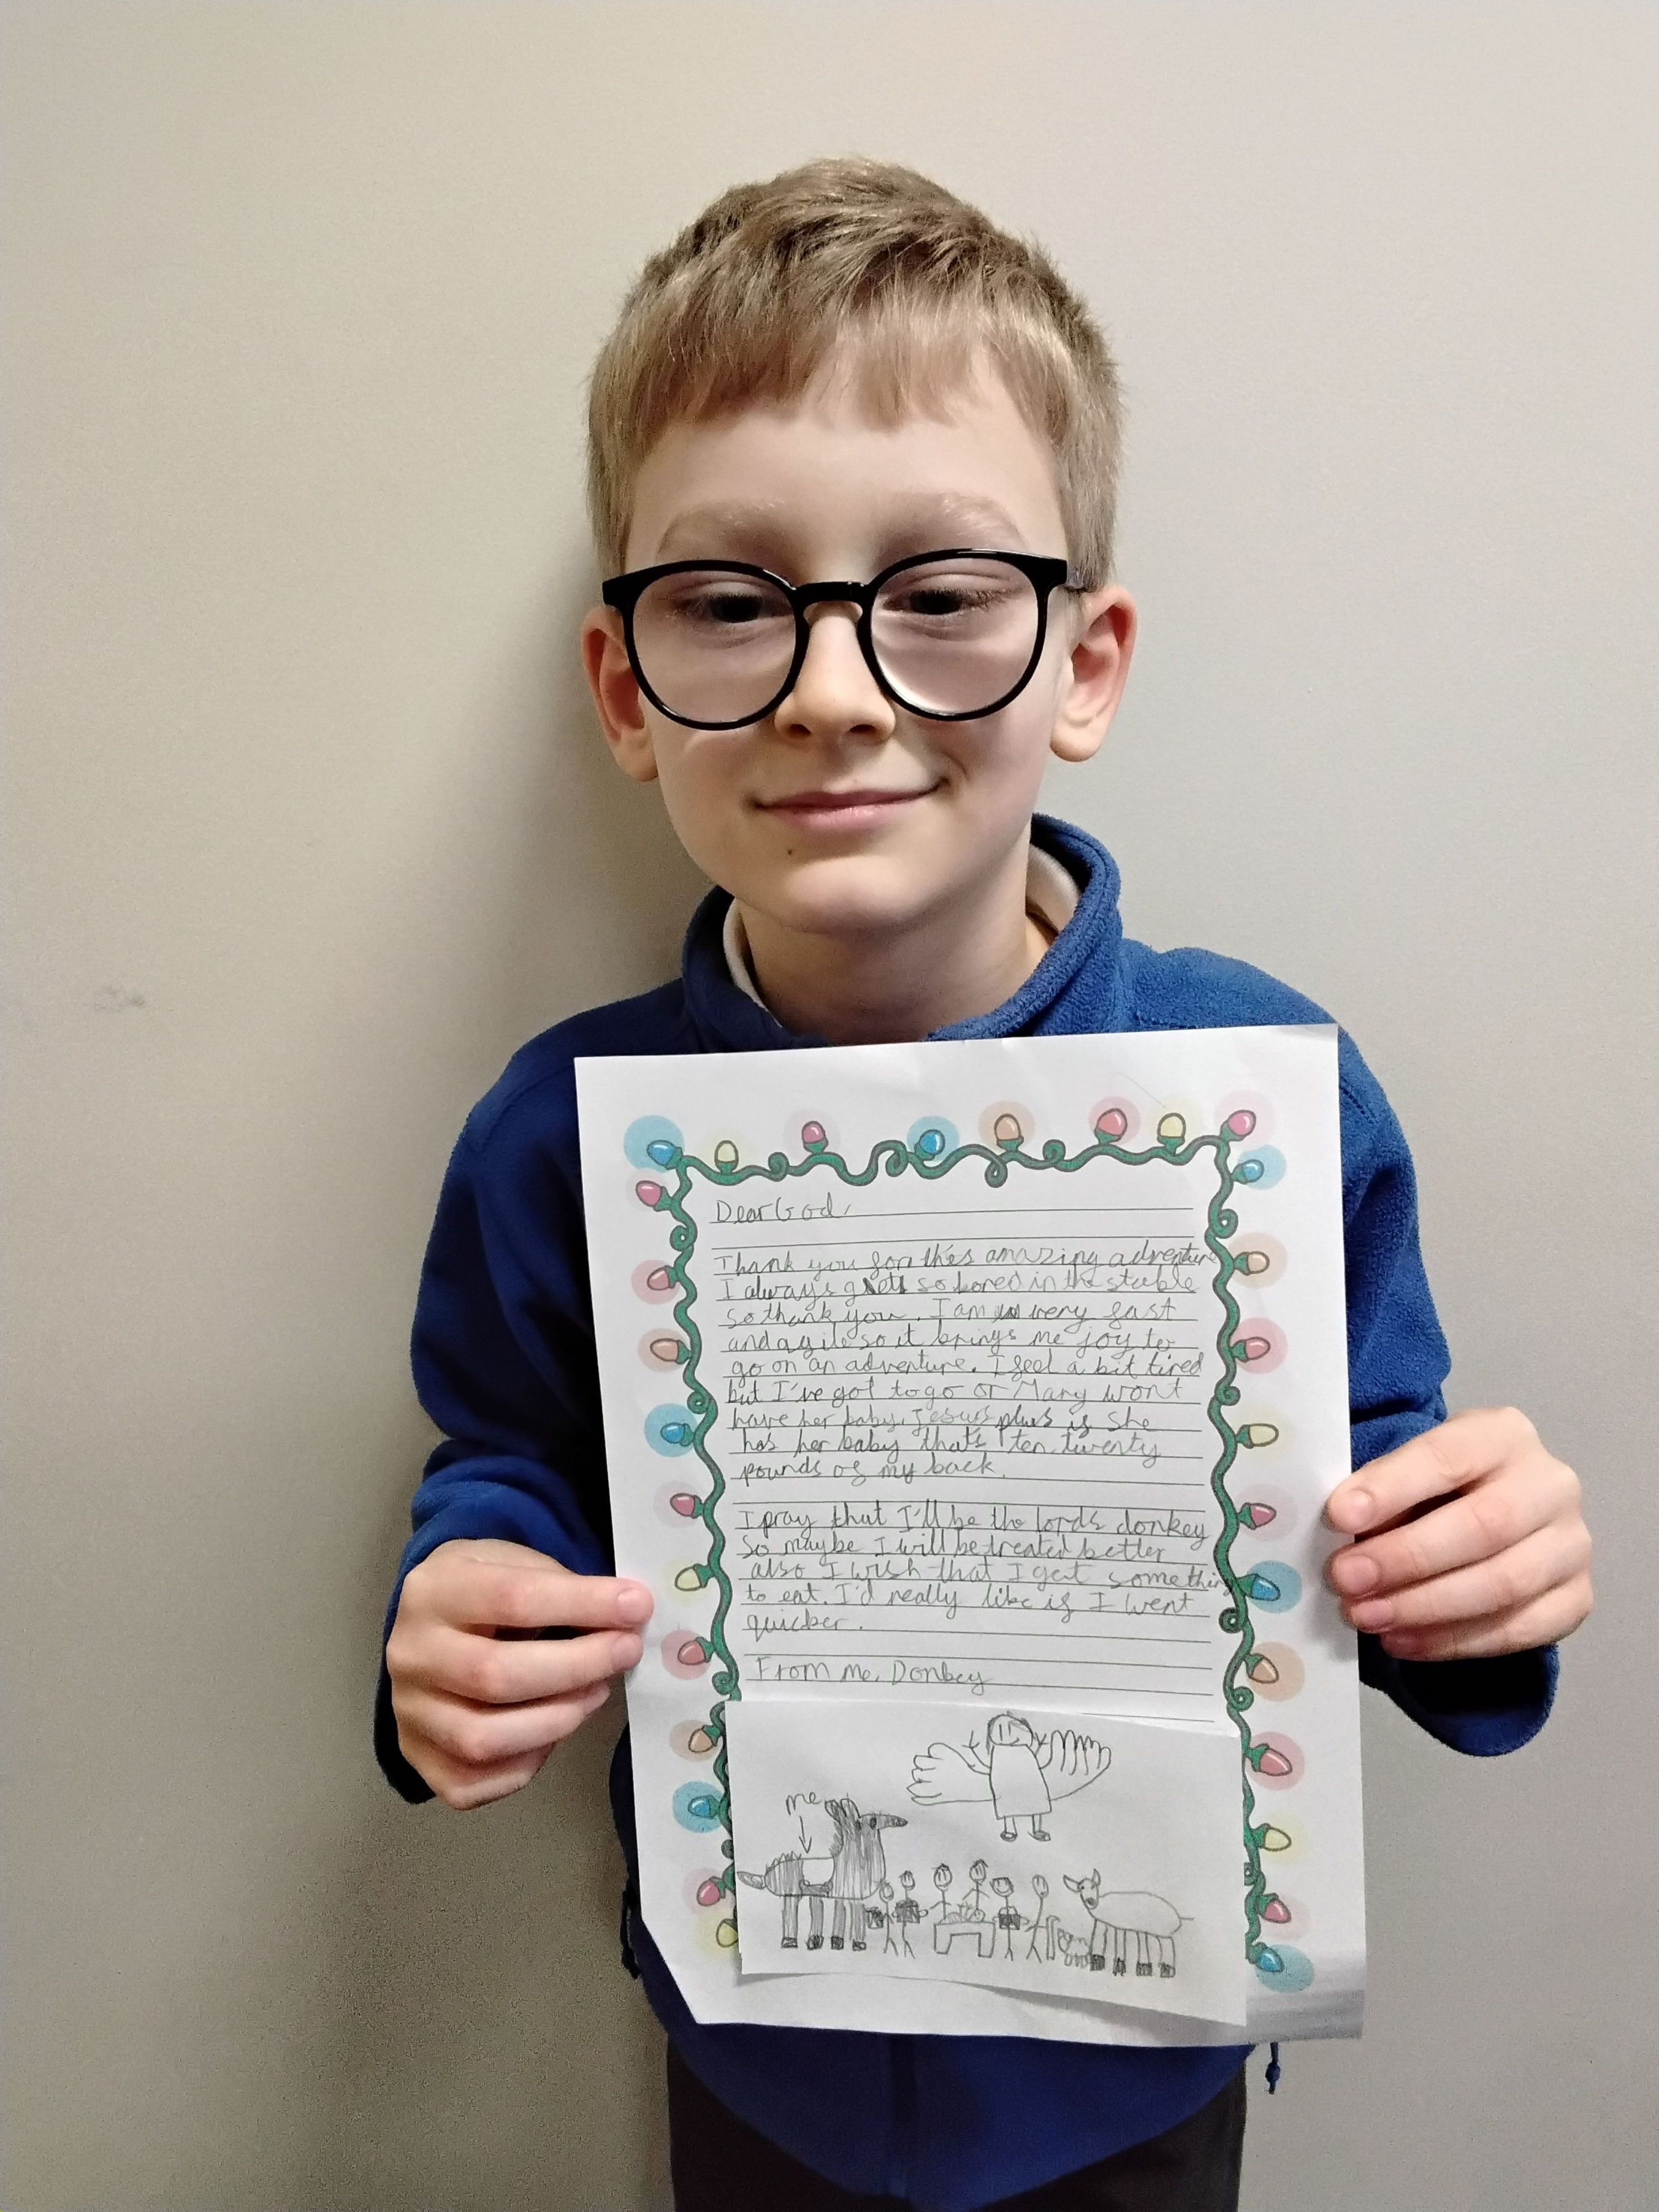 Dear God,
Thank you for this amazing adventure
I always get so bored in the stable
so thank you. I am very fast
and agile so it brings me joy to
go on an adventure. I feel a bit tired
but I've got to go or Mary wont
have her baby Jesus plus if she
has her baby that's ten twenty
pounds of my back.
I pray that I'll be the lords donkey
So maybe I will be treated better
also I wish that I get something
to eat. I'd really like if I went
quicker.
From me, Donkey
me